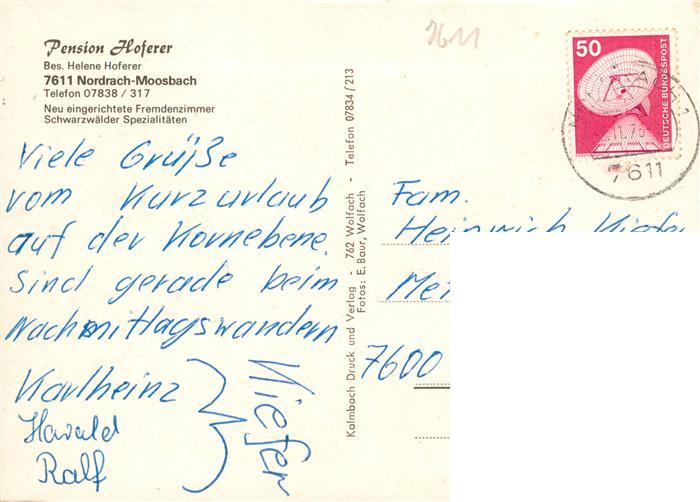 Pension Hoferer
Bes. Helene Hoferer
7611 Nordrach-Moosbach
Telefon 07838 / 317
Neu eingerichtete Fremdenzimmer
Schwarzwälder Spezialitäten
Viele Grüße
vom Kurzurlaub
auf der Kornebene.
Sind gerade beim
Nachmittagswandern
Karlheinz
Harald
Ralf
Kiefer
Kalmbach Druck und Verlag - 762 Wolfach - Telefon 07834/213
Fotos: E. Baur, Wolfach
7611
50
DEUTSCHE BUNDESPOST
7611
Fam.
Heinrich Kiefe
7600